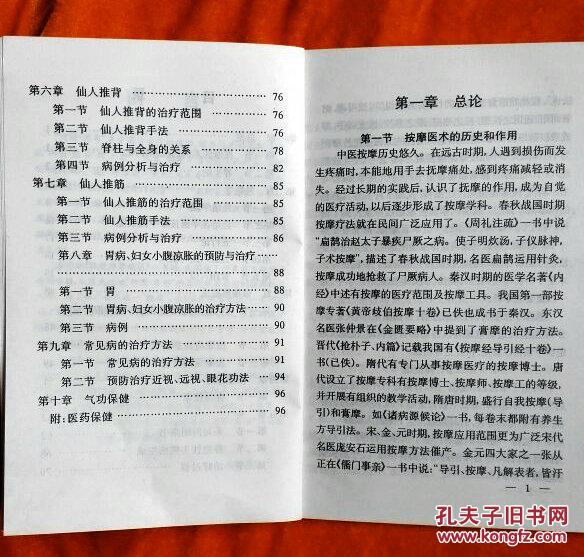 第六章 仙人推背 76
第一节 仙人推背的治疗范围 76
第二节 仙人推背手法 76
第三节 脊柱与全身的关系 78
第四节 病例分析与治疗 82
第七章 仙人推筋 85
第一节 仙人推筋的治疗范围 85
第二节 仙人推筋手法 85
第三节 病例分析与治疗 86
第八章 胃病、妇女小腹凉胀的预防与治疗
88
第一节 胃 88
第二节 胃病、妇女小腹凉胀的治疗方法 90
第三节 病例 90
第九章 常见病的治疗方法 91
第一节 常见病的治疗方法 91
第二节 预防治疗近视、远视、眼花功法 94
第十章 气功保健 96
附:医药保健 96
第一章 总论
第一节 按摩医术的历史和作用
中医按摩历史悠久。在远古时期,人遇到损伤而发
生疼痛时,本能地用手去抚摩痛处,感到疼痛减轻或消
失。经过长期的实践后,认识了抚摩的作用,成为自觉
的医疗活动,以后逐步形成了按摩学科。春秋战国时期
按摩疗法就在民间广泛应用了。《周礼注疏》一书中说
“扁鹊治赵太子暴疾尸厥之病。使子明炊汤,子仪脉神,
子术按摩”,描述了春秋战国时期,名医扁鹊运用针灸,
按摩成功地抢救了尸厥病人。秦汉时期的医学名著《内
经》中述有按摩的医疗范围及按摩工具。我国第一部按
摩专著《黄帝歧伯按摩十卷》已佚也成书于秦汉。东汉
名医张仲景在《金匮要略》中提到了膏摩的治疗方法。
晋代《抢朴子、内篇》记载我国有《按摩经导引经十卷》一
书(已佚)。隋代有专门从事按摩医疗的按摩博士。唐
代设立了按摩专科有按摩博士、按摩师、按摩工的等级,
并开展有组织的教学活动,隋唐时期,盛行自我按摩(导
引)和膏摩。如《诸病源候论》一书,每卷末都附有养生
方导引法。宋、金、元时期,按摩应用范围更为广泛宋代
名医庞安石运用按摩方法催产。金元四大家之一张从
正在《儒门事亲》一书中说:“导引、按摩、凡解表者,皆汗
— 1 —
孔夫子旧书网
www.kongfz.com